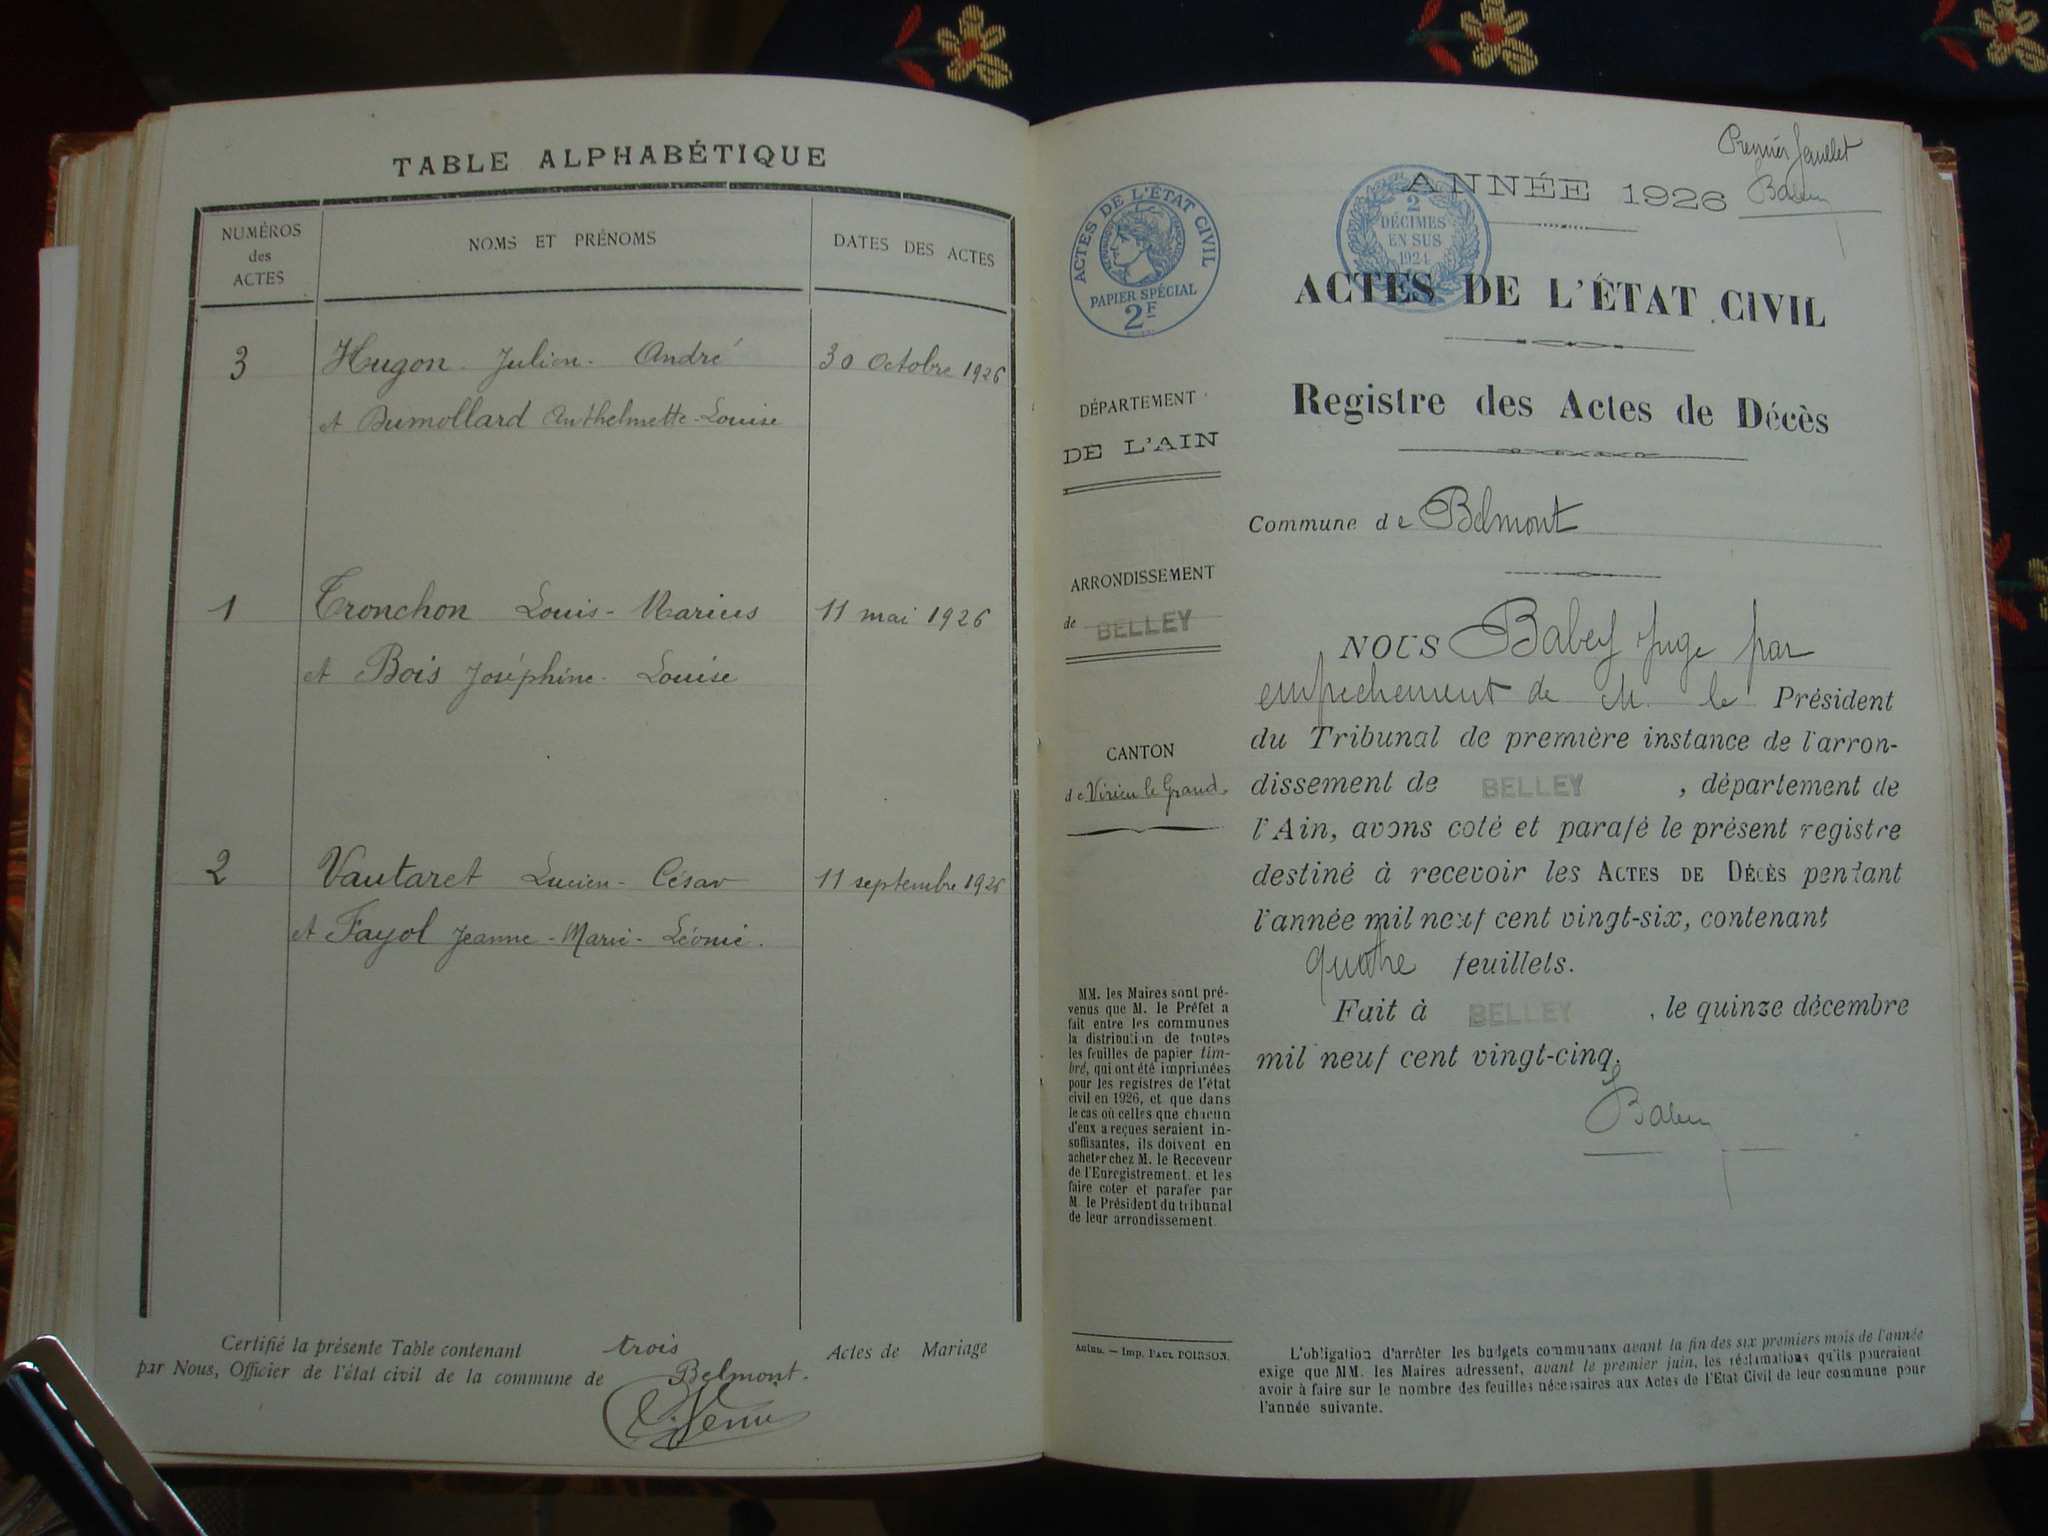 TABLE ALPHABÉTIQUE
NUMÉROS
des
ACTES
NOMS ET PRÉNOMS
DATES DES ACTES
3 Hugon Julien - André 30 Octobre 1926
et Dumollard Anthelmette-Louise
1 Tronchon Louis-Marius 11 mai 1926
et Bois Joséphine-Louise
2 Vautaret Lucien-César 11 septembre 1926
et Fayol Jeanne-Marie-Léonie.
Certifié la présente Table contenant trois Actes de Mariage
par Nous, Officier de l'état civil de la commune de Belmont.
Premier feuillet
Babey
ANNÉE 1926
ACTES DE L'ÉTAT CIVIL
PAPIER SPÉCIAL
2F
2
DÉCIMES
EN SUS
1924
ACTES DE L'ÉTAT CIVIL
Registre des Actes de Décès
DÉPARTEMENT
DE L'AIN
ARRONDISSEMENT
de BELLEY
CANTON
de Virieu le Grand
MM. les Maires sont pré-
venus que M. le Préfet a
fait entre les communes
la distribution de toutes
les feuilles de papier tim-
bré, qui ont été imprimées
pour les registres de l'état
civil en 1926, et que dans
le cas où celles que chacun
d'eux a reçues seraient in-
suffisantes, ils doivent en
acheter chez M. le Receveur
de l'Enregistrement, et les
faire coter et parafer par
M. le Président du tribunal
de leur arrondissement.
Imp. PAUL POIRSON.
Commune de Belmont
NOUS Babey juge par
empêchement de M. le Président
du Tribunal de première instance de l'arron-
dissement de BELLEY, département de
l'Ain, avons coté et parafé le présent registre
destiné à recevoir les ACTES DE DÉCÈS pendant
l'année mil neuf cent vingt-six, contenant
quatre feuillets.
Fait à BELLEY, le quinze décembre
mil neuf cent vingt-cinq.
Babey
L'obligation d'arrêter les budgets communaux avant la fin des six premiers mois de l'année
exige que MM. les Maires adressent, avant le premier juin, les réclamations qu'ils pourraient
avoir à faire sur le nombre des feuilles nécessaires aux Actes de l'Etat Civil de leur commune pour
l'année suivante.